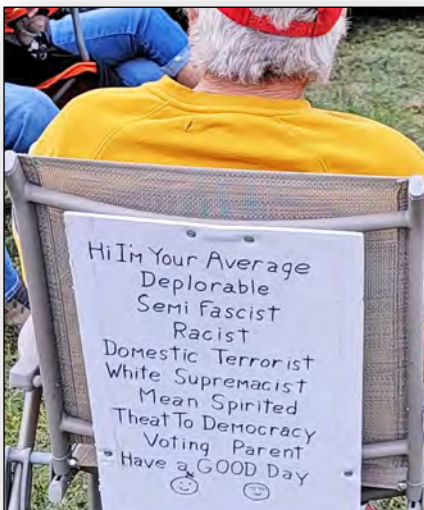 Hi I'm Your Average
Deplorable
Semi Fascist
Racist
Domestic Terrorist
White Supremacist
Mean Spirited
Theat To Democracy
Voting Parent
Have a GOOD Day